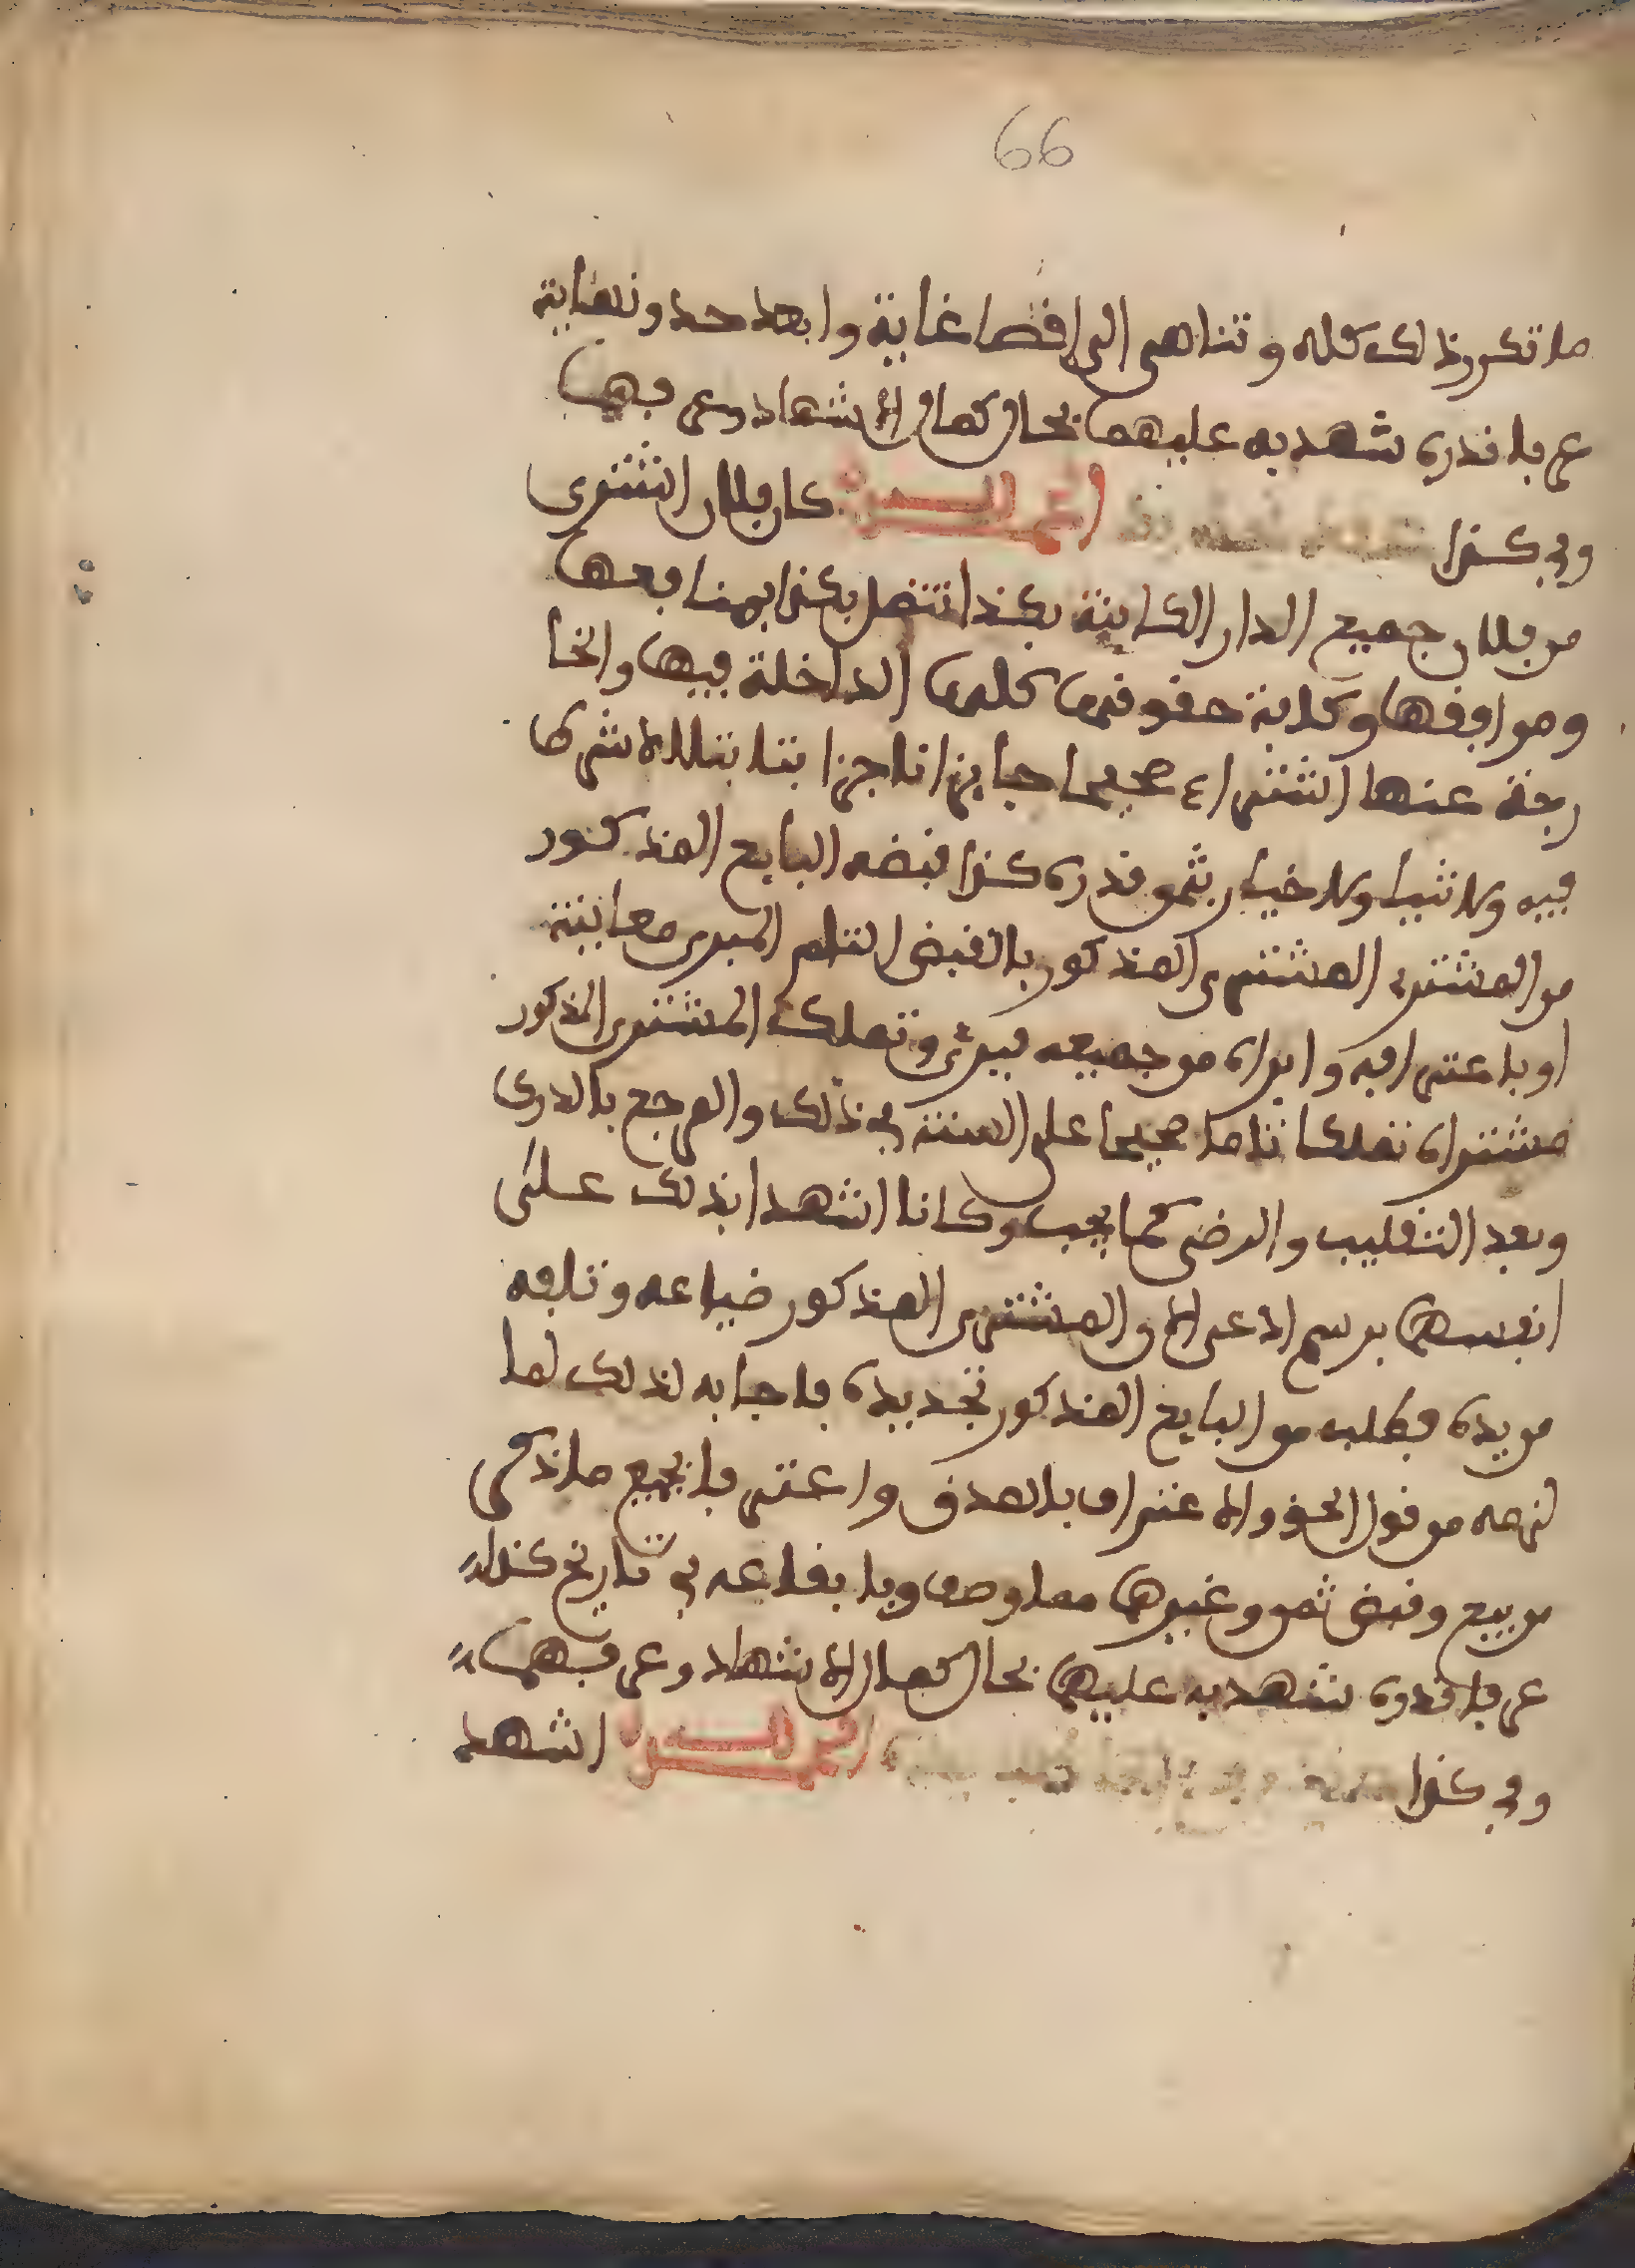 66
ما تكرر ذلك كله وتناهى الى اقصا غاية وابعد حد ونهاية
عرفا قدره شهد به عليهما بحال كمال الاشهاد وعرفهما
وفي كذا الحمد لله كان فلان اشترى
من فلان جميع الدار الكاينة بكذا تتصل بكذا بمنافعها
ومرافقها وكافة حقوقها كلها الداخلة فيها والخا
رجة عنها اشتراء صحيحا جايزا ناجزا بتا بتلا لا شرط
فيه ولا ثنيا ولا خيار بثمن قدره كذا قبضه البايع المذكور
من المشترى المشترى المذكور بالقبض التام المبرى معاينة
او باعترافه وابراه من جميعه فبرئ وتملك المشترى المذكور
مشتراه تملكا تاما صحيحا على السنة في ذلك والمرجع بالدرك
وبعد التقليب والرضى كما يجب وكانا اشهدا بذلك على
انفسهما برسم ادعى الان المشترى المذكور ضياعه وتلفه
من يده فطلب من البايع المذكور تجديده فاجابه لذلك لما
لزمه من قول الحق والاعتراف بالصدق واعترفا بجميع ما ذكر
من بيع وقبض ثمن وغيرهما مما وصف وبايقاعه في تاريخ كذا
عرفا قدره شهد به عليهما بحال كمال الاشهاد وعرفهما
وفي كذا الحمد لله اشهد